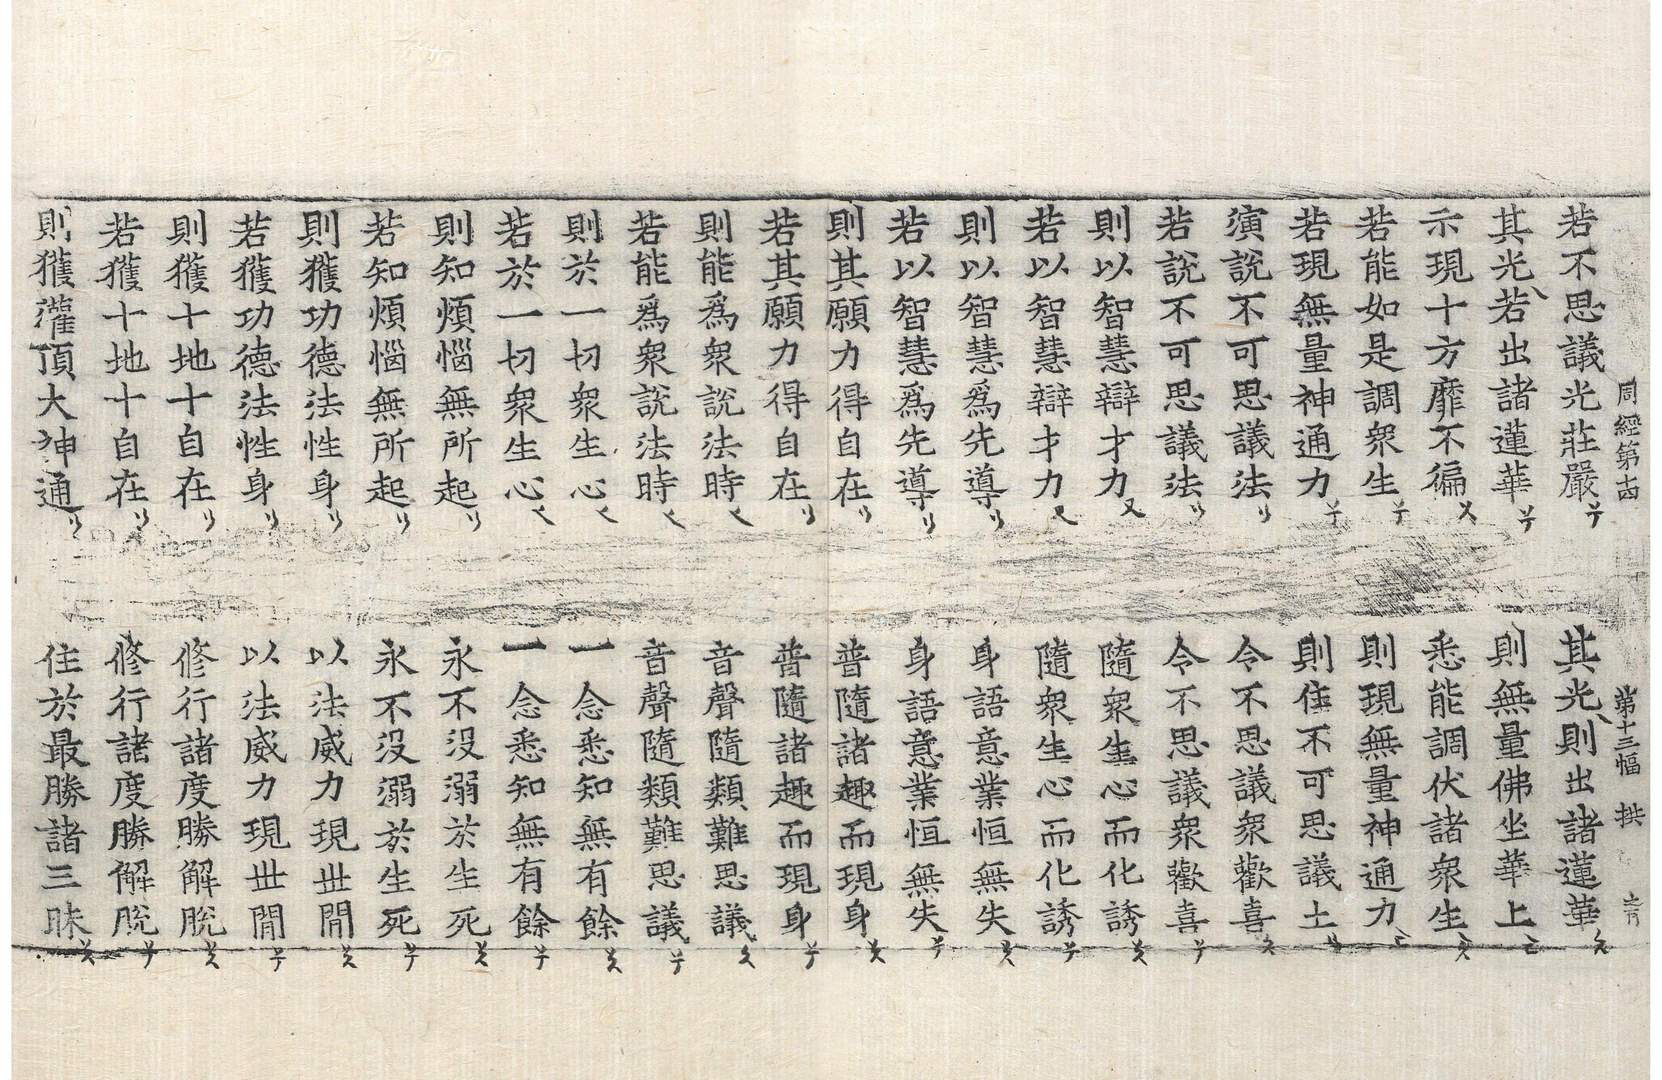 周經第十四 第十三幅 拱
若不思議光莊嚴 其光則出諸蓮華
其光若出諸蓮華 則無量佛坐華上
示現十方靡不徧 悉能調伏諸衆生
若能如是調衆生 則現無量神通力
若現無量神通力 則住不可思議土
演說不可思議法 令不思議衆歡喜
若說不可思議法 令不思議衆歡喜
則以智慧辯才力 隨衆生心而化誘
若以智慧辯才力 隨衆生心而化誘
則以智慧爲先導 身語意業恒無失
若以智慧爲先導 身語意業恒無失
則其願力得自在 普隨諸趣而現身
若其願力得自在 普隨諸趣而現身
則能爲衆說法時 音聲隨類難思議
若能爲衆說法時 音聲隨類難思議
則於一切衆生心 一念悉知無有餘
若於一切衆生心 一念悉知無有餘
則知煩惱無所起 永不没溺於生死
若知煩惱無所起 永不没溺於生死
則獲功德法性身 以法威力現世間
若獲功德法性身 以法威力現世間
則獲十地十自在 修行諸度勝解脫
若獲十地十自在 修行諸度勝解脫
則獲灌頂大神通 住於最勝諸三昧